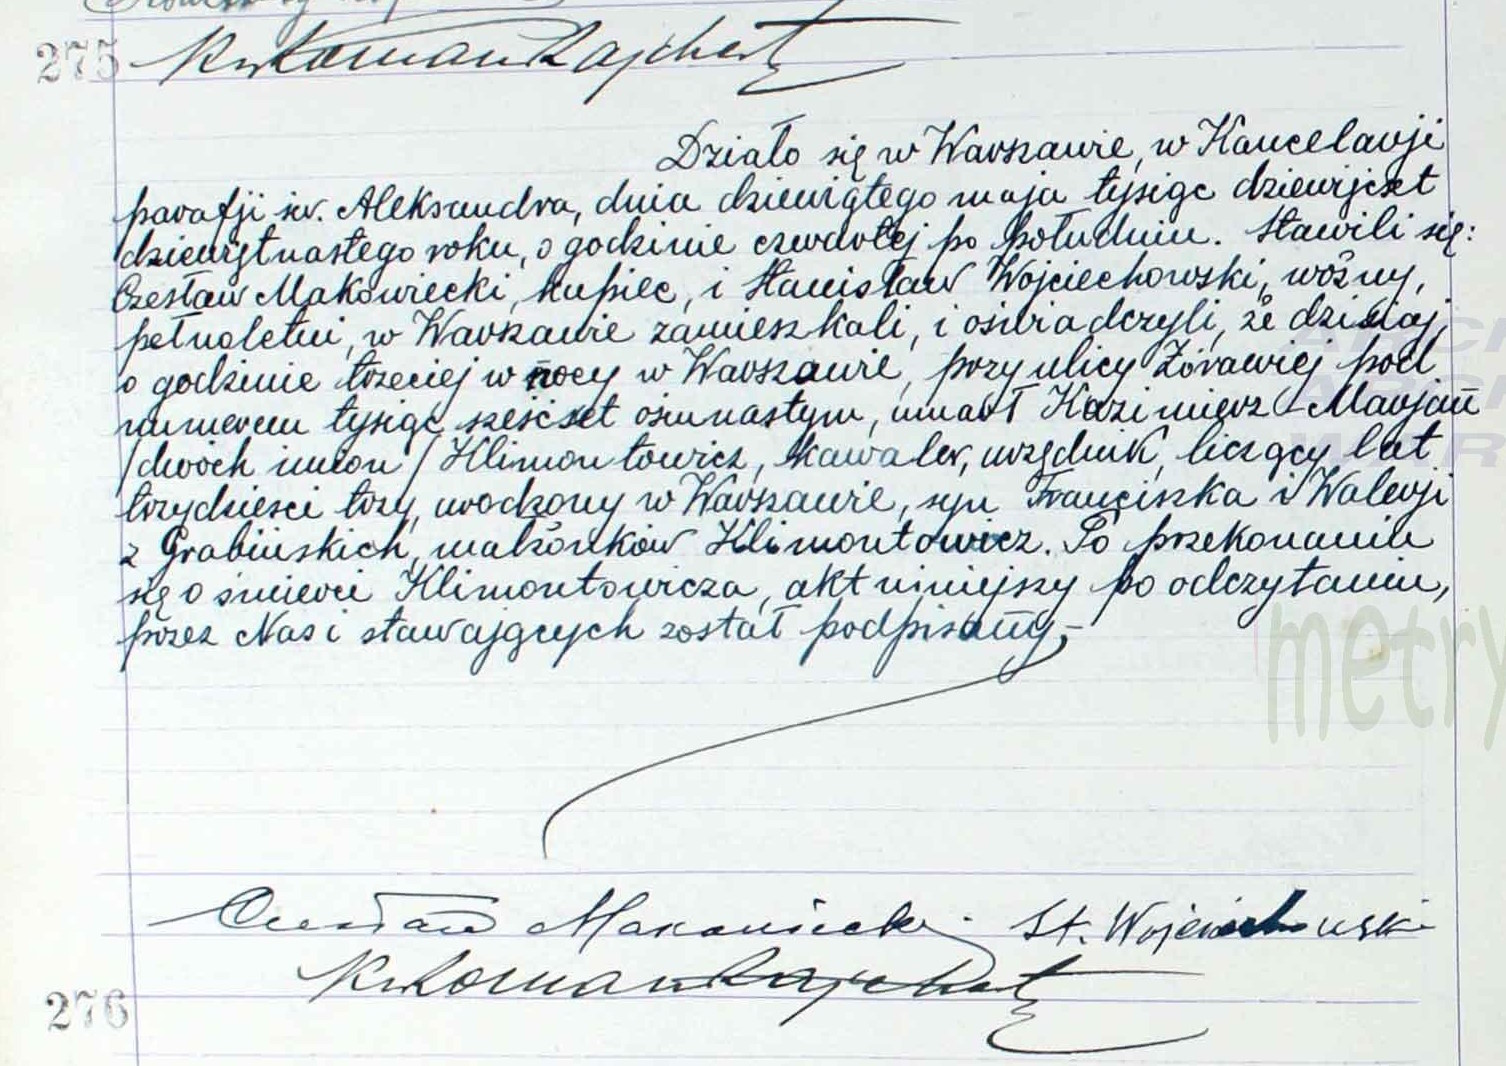 275 Ks Roman Rajchert
Działo się w Warszawie, w Kancelarji
parafji św. Aleksandra, dnia dziewiątego maja tysiąc dziewięćset
dziewiętnastego roku, o godzinie czwartej po południu. Stawili się:
Czesław Makowiecki, kupiec, i Stanisław Wojciechowski, woźny,
pełnoletni, w Warszawie zamieszkali, i oświadczyli, że dzisiaj,
o godzinie trzeciej w nocy w Warszawie, przy ulicy Żórawiej pod
numerem tysiąc sześćset ośmnastym, umarł Kazimierz-Marjan
/dwóch imion/ Klimontowicz, kawaler, urzędnik, liczący lat
trzydzieści trzy, urodzony w Warszawie, syn Franciszka i Walerji
z Grabińskich, małżonków Klimontowicz. Po przekonaniu
się o śmierci Klimontowicza, akt niniejszy po odczytaniu,
przez Nas i stawających został podpisany,-
Czesław Makowiecki. St. Wojciechowski
Ks Roman Rajchert
276
metry